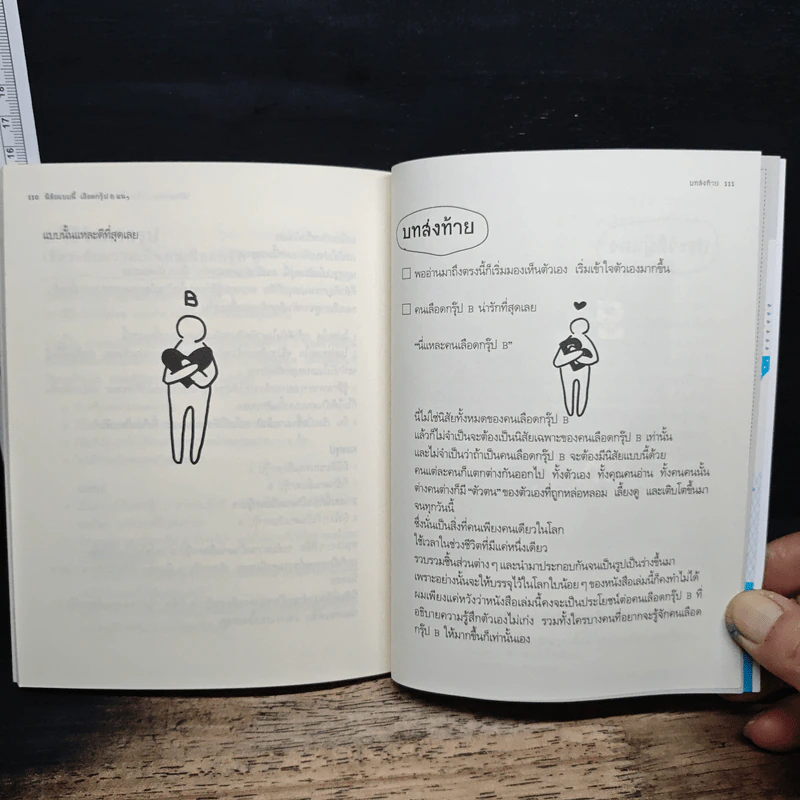 110 นิสัยแบบนี้ เลือดกรุ๊ป B แน่ๆ
แบบนั้นแหละดีที่สุดเลย
B
บทส่งท้าย 111
บทส่งท้าย
พออ่านมาถึงตรงนี้ก็เริ่มมองเห็นตัวเอง เริ่มเข้าใจตัวเองมากขึ้น
คนเลือดกรุ๊ป B น่ารักที่สุดเลย
“นี่แหละคนเลือดกรุ๊ป B”
นี่ไม่ใช่นิสัยทั้งหมดของคนเลือดกรุ๊ป B
แล้วก็ไม่จำเป็นจะต้องเป็นนิสัยเฉพาะของคนเลือดกรุ๊ป B เท่านั้น
และไม่จำเป็นว่าถ้าเป็นคนเลือดกรุ๊ป B จะต้องมีนิสัยแบบนี้ด้วย
คนแต่ละคนก็แตกต่างกันออกไป ทั้งตัวเอง ทั้งคุณคนอ่าน ทั้งคนคนนั้น
ต่างคนต่างก็มี “ตัวตน” ของตัวเองที่ถูกหล่อหลอม เลี้ยงดู และเติบโตขึ้นมา
จนทุกวันนี้
ซึ่งนั่นเป็นสิ่งที่คนเพียงคนเดียวในโลก
ใช้เวลาในช่วงชีวิตที่มีแค่หนึ่งเดียว
รวบรวมชิ้นส่วนต่างๆ และนำมาประกอบกันจนเป็นรูปเป็นร่างขึ้นมา
เพราะอย่างนั้นจะให้บรรจุไว้ในโลกใบน้อยๆ ของหนังสือเล่มนี้ก็คงทำไม่ได้
ผมเพียงแค่หวังว่าหนังสือเล่มนี้คงจะเป็นประโยชน์ต่อคนเลือดกรุ๊ป B ที่
อธิบายความรู้สึกตัวเองไม่เก่ง รวมทั้งใครบางคนที่อยากจะรู้จักคนเลือด
กรุ๊ป B ให้มากขึ้นก็เท่านั้นเอง
16
17
18